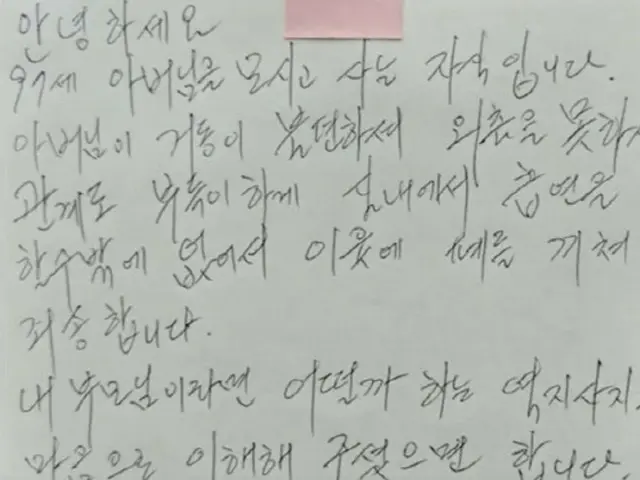 안녕하세요
97세 아버님을 모시고 사는 자식입니다.
아버님이 거동이 불편하셔 외출을 못하
관계로 부득이하게 실내에서 흡연을
할수밖에 없어서 이웃에 폐를 끼쳐
죄송합니다.
내 부모님이라면 어떨까 하는 역지사지
마음으로 이해해 주셨으면 합니다